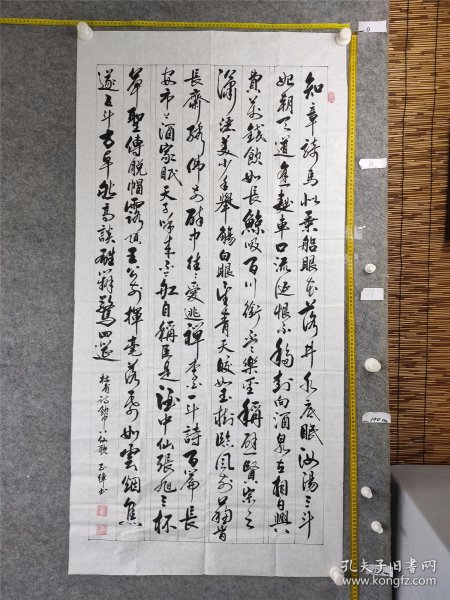 知章騎馬似乘船眼花落井水底眠汝陽三斗
始朝天道逢麴車口流涎恨不移封向酒泉左相日興
費萬錢飲如長鯨吸百川銜盃樂聖稱避賢宗之
瀟灑美少年舉觴白眼望青天皎如玉樹臨風前蘇晉
長齋繡佛前醉中往往愛逃禪李白一斗詩百篇長
安市上酒家眠天子呼來不上船自稱臣是酒中仙張旭三杯
草聖傳脫帽露頂王公前揮毫落紙如雲烟焦
遂五斗方卓然高談雄辯驚四筵
杜甫詩飲中八仙歌 書
孔夫子旧书网
www.kongfz.com